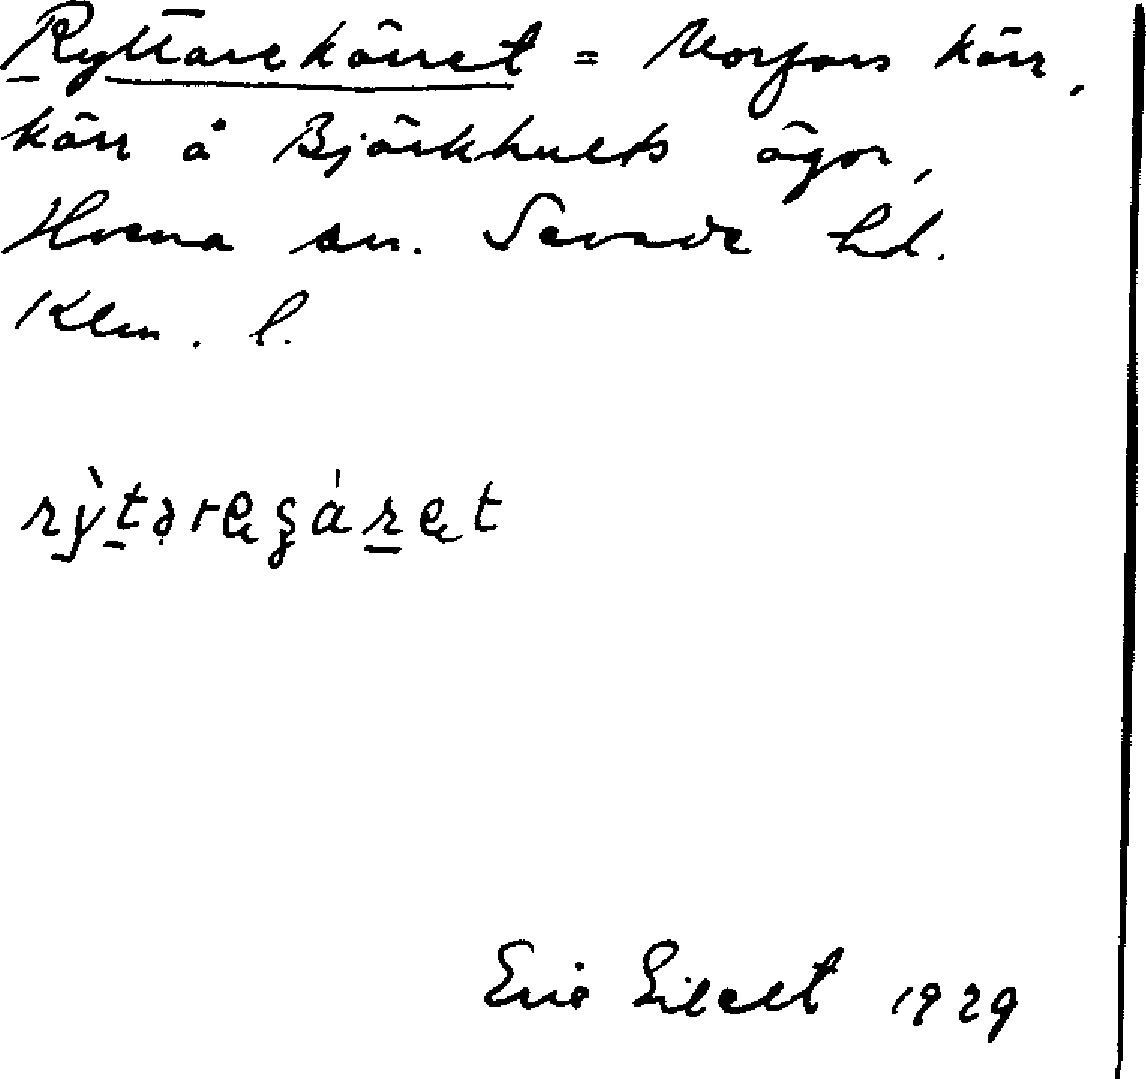 Ryttarekärret = Morfars kärr,
kärr å Björkhults ägor,
Horna sn. Sevede hd.
Klm. l.
rỳtəregáret
Eric 1929